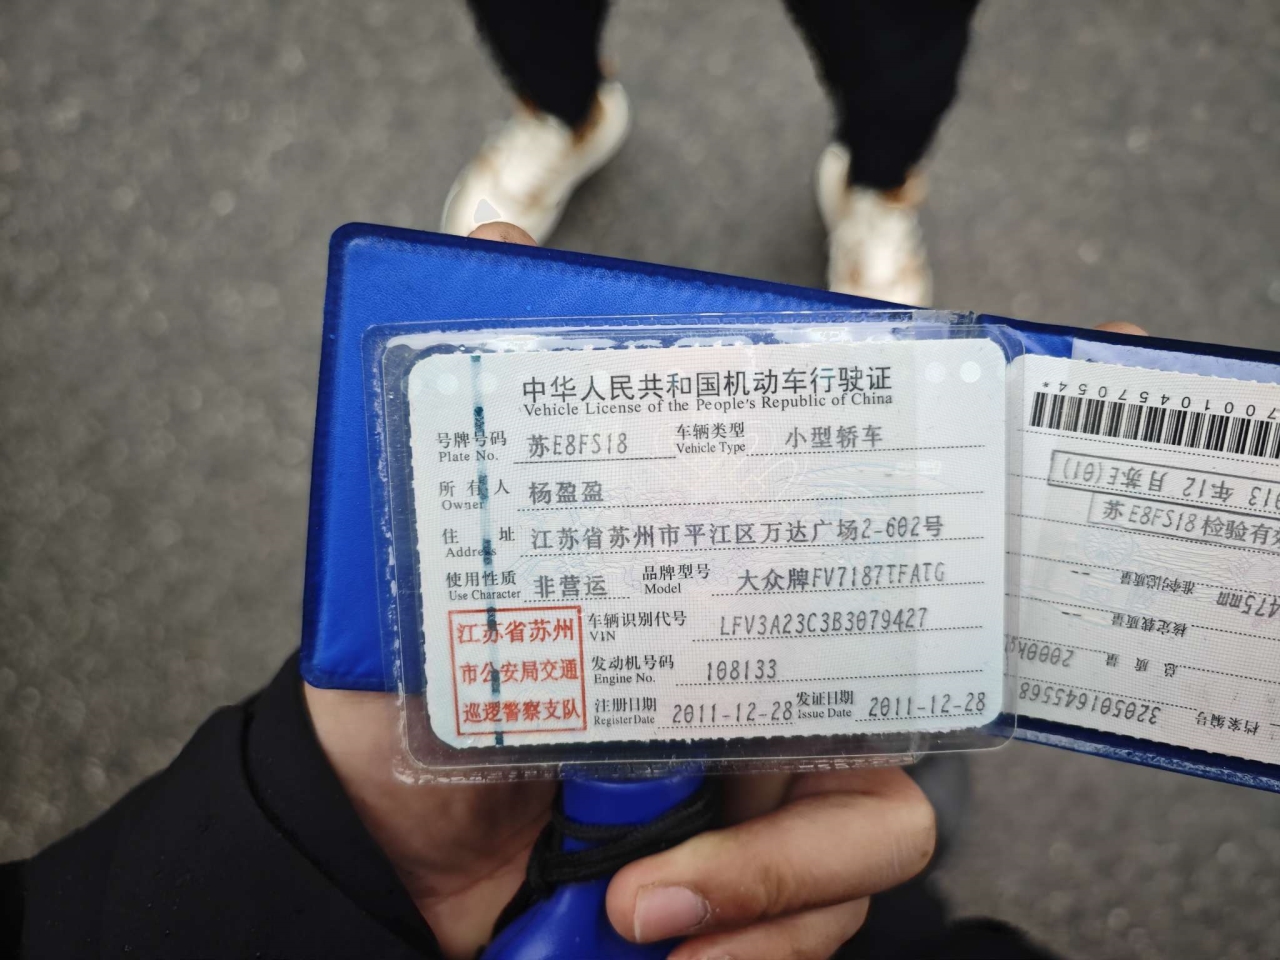 中华人民共和国机动车行驶证
Vehicle License of the People's Republic of China
号牌号码 苏E8FS18 车辆类型 小型轿车
Plate No. Vehicle Type
所有人 杨盈盈
Owner
住址 江苏省苏州市平江区万达广场2-602号
Address
使用性质 非营运 品牌型号 大众牌FV7187TFATG
Use Character Model
江苏省苏州
市公安局交通
巡逻警察支队
车辆识别代号 LFV3A23C3B3079427
VIN
发动机号码 108133
Engine No.
注册日期 2011-12-28 发证日期 2011-12-28
Register Date Issue Date
70010457054*
13 年 12 月苏E(01)
苏E8FS18检验有
整备质量
475mm
核定载质量
总质量 2000kg
档案编号 320501645568